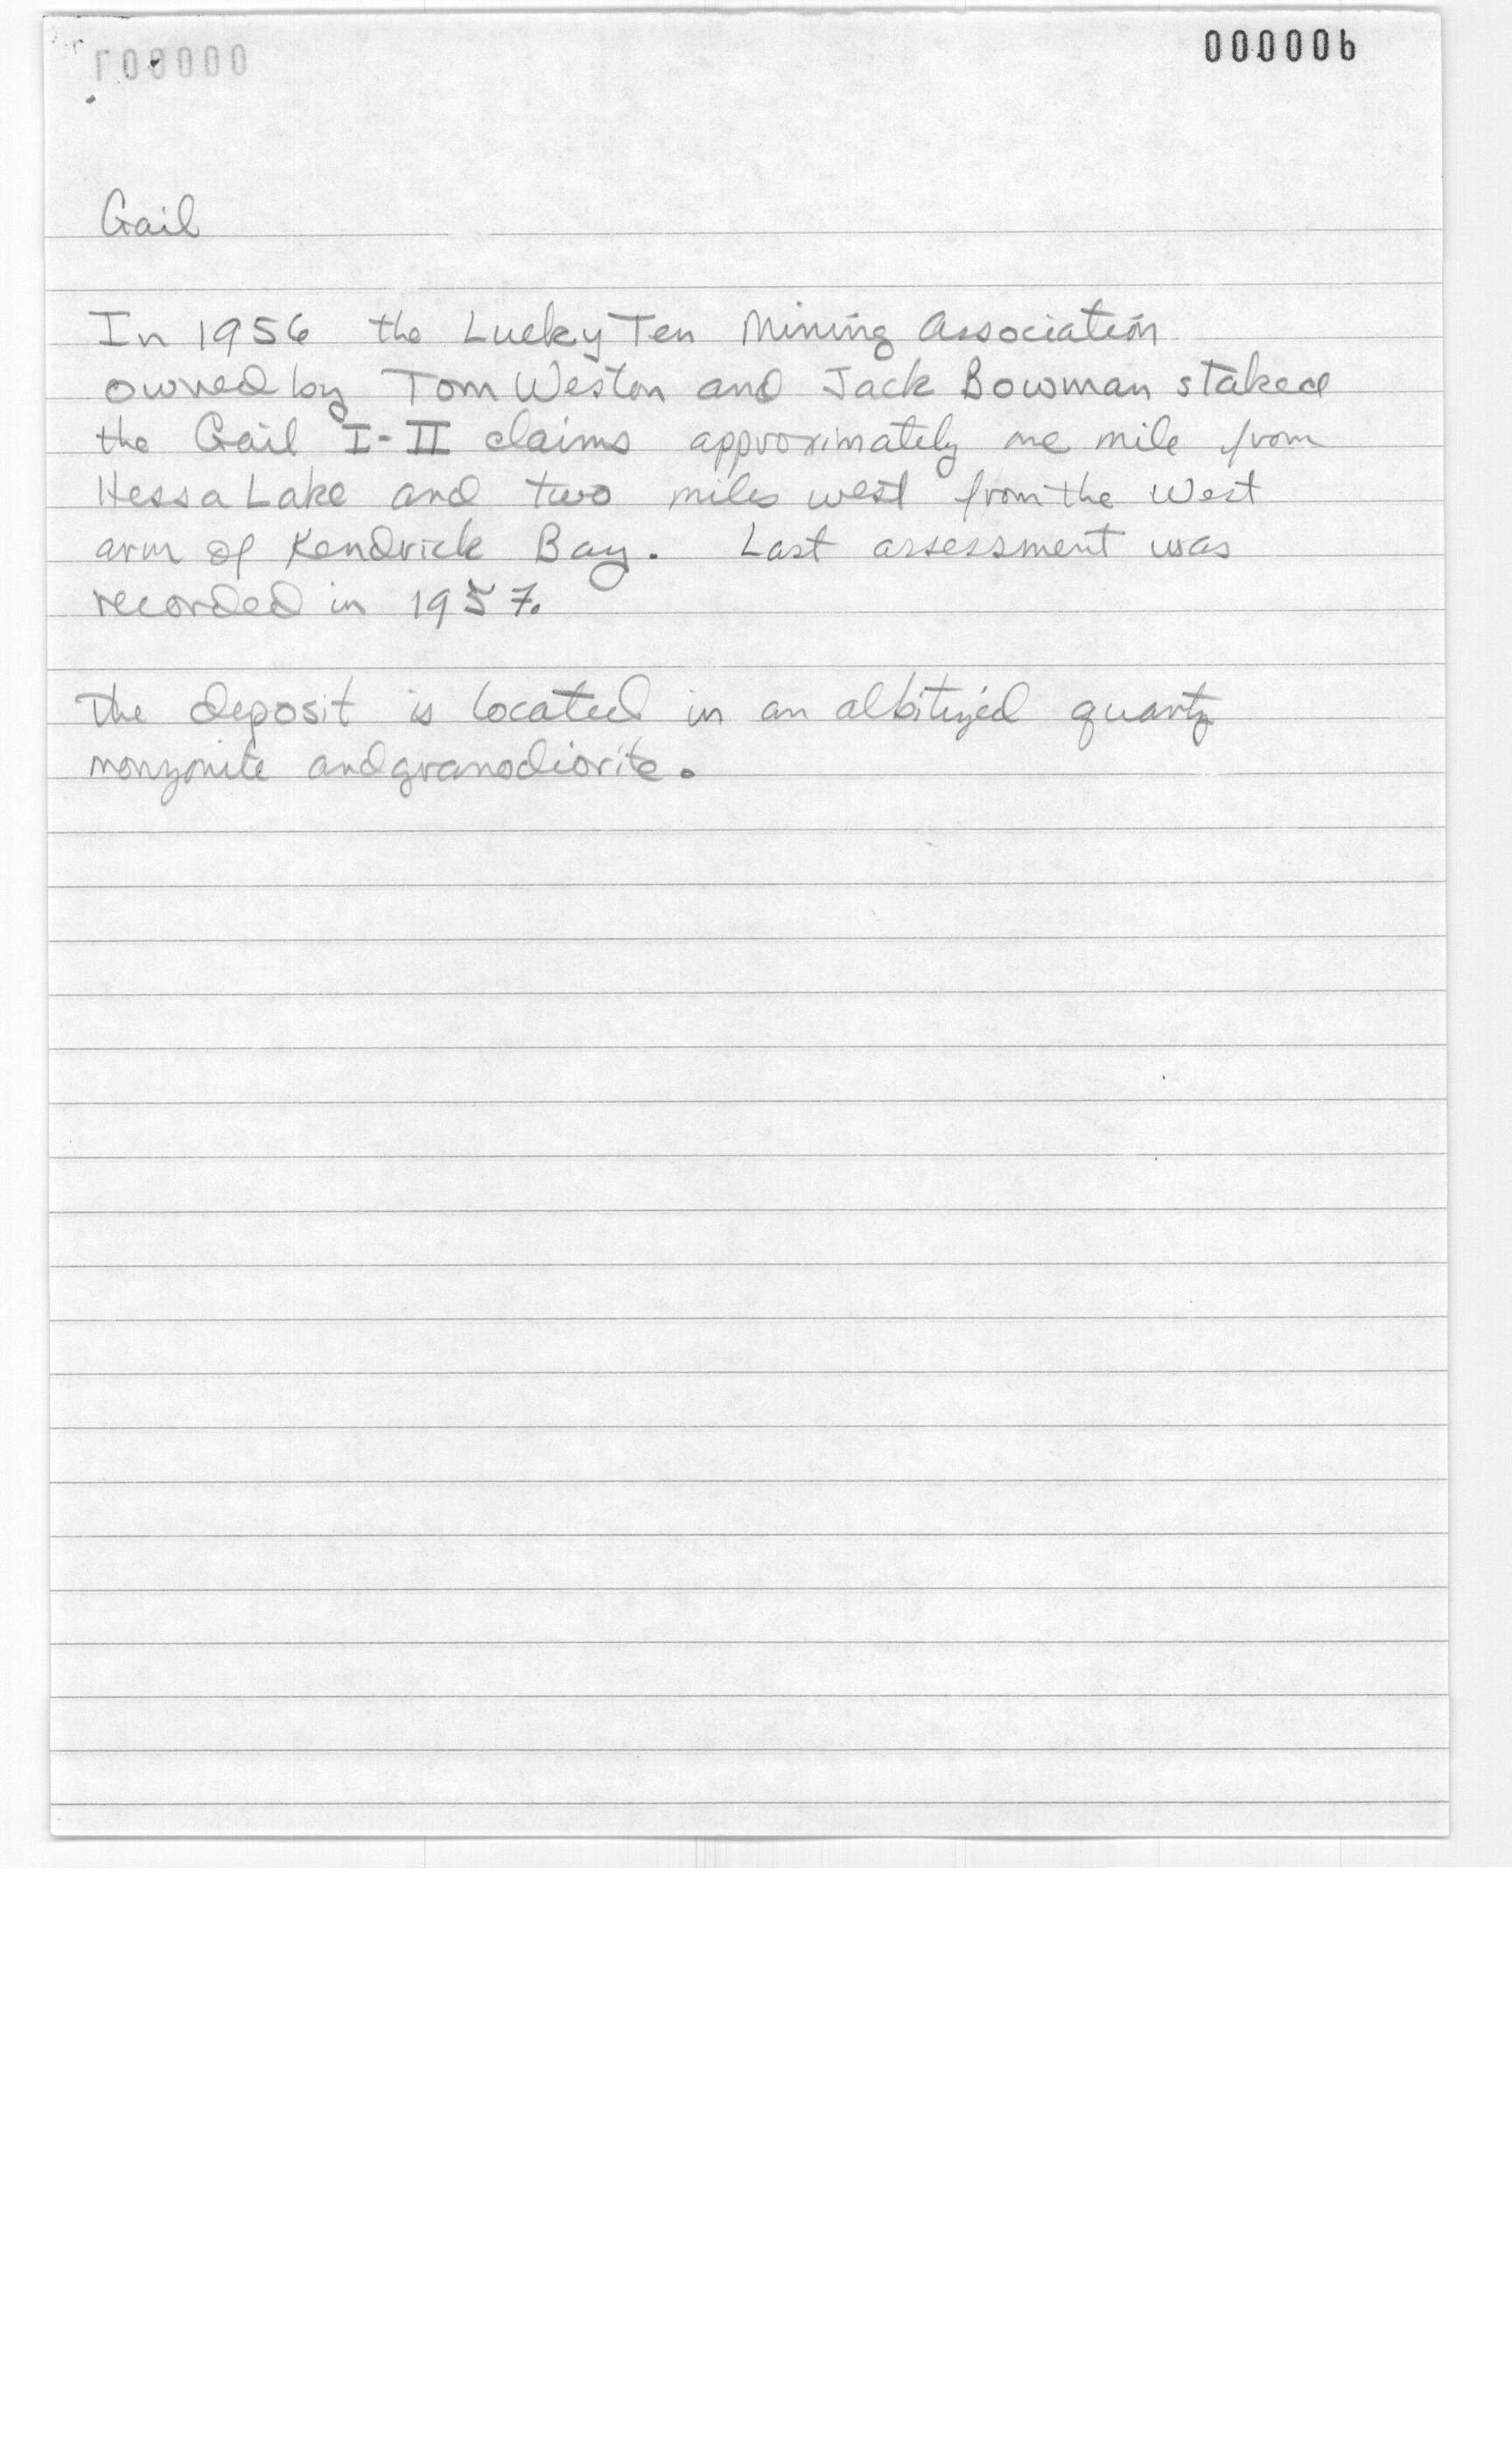 000006
Gail
In 1956 the Lucky Ten Mining Association
owned by Tom Weston and Jack Bowman staked
the Gail I-II claims approximately one mile from
Hessa Lake and two miles west from the West
arm of Kendrick Bay. Last assessment was
recorded in 1957.
The deposit is located in an albitized quartz
monzonite and granodiorite.